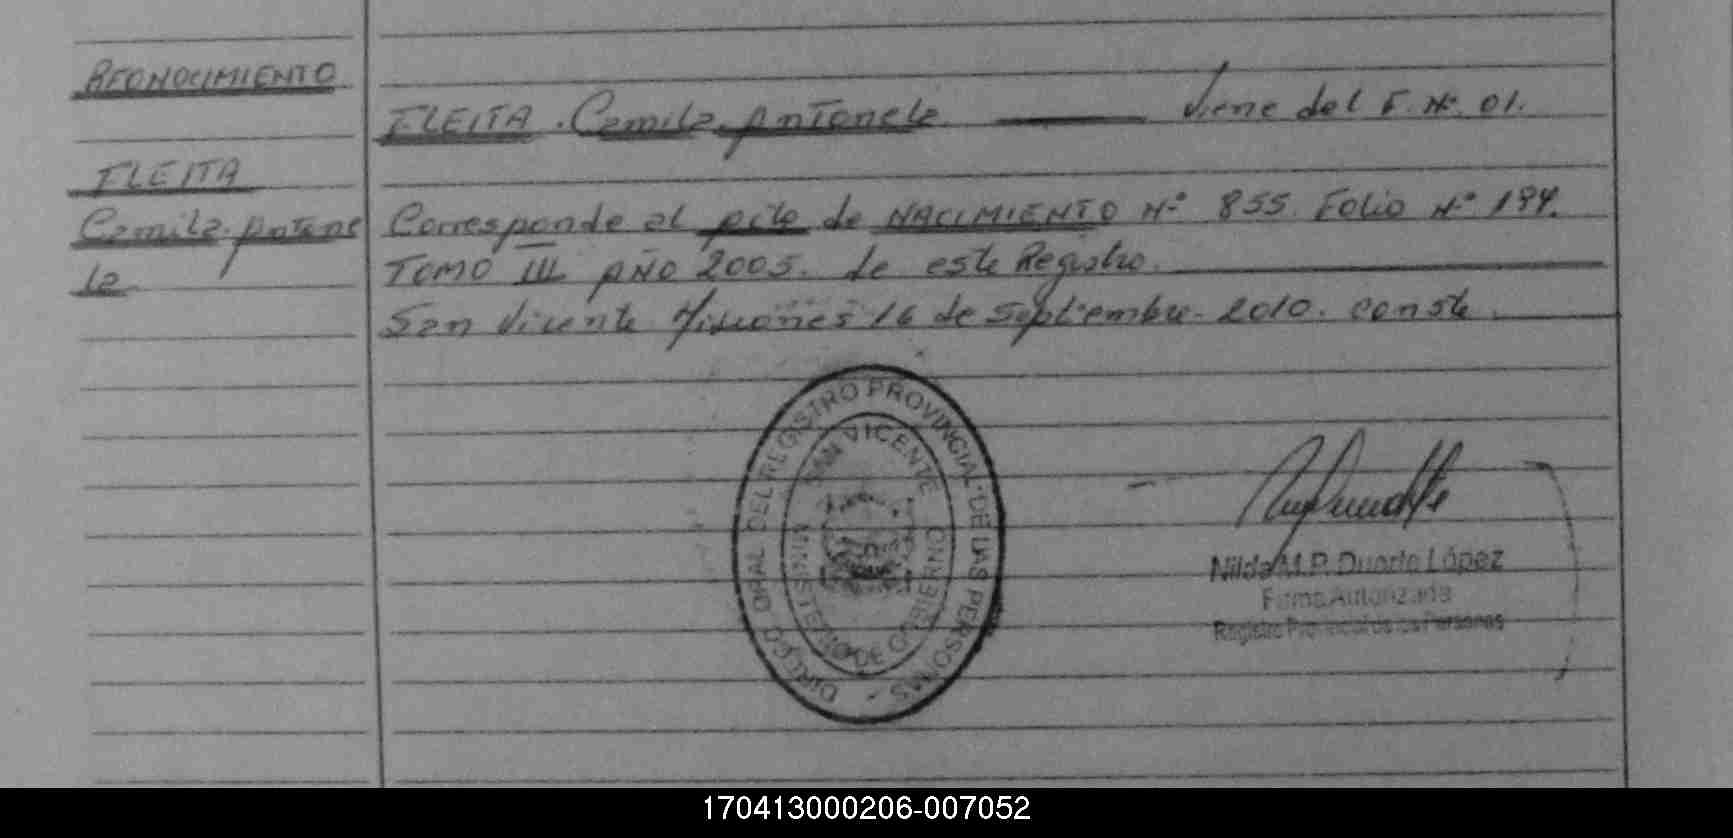 RECONOCIMIENTO
FLEITA
Camila Antone
la
FLEITA. Camila Antonela Viene del F. Nº. 01.
Corresponde al Acta de NACIMIENTO Nº 855. Folio Nº 194.
TOMO III AÑO 2005. de este Registro.
San Vicente Misiones 16 de Septiembre 2010. conste.
DIRECCIÓ GRAL DEL REGISTRO PROVINCIAL DE LAS PERSONAS -
SAN VICENTE
MINISTERIO DE GOBIERNO
Nilda M.P. Duarte López
Firma Autorizada
Registro Provincial de las Personas
170413000206-007052